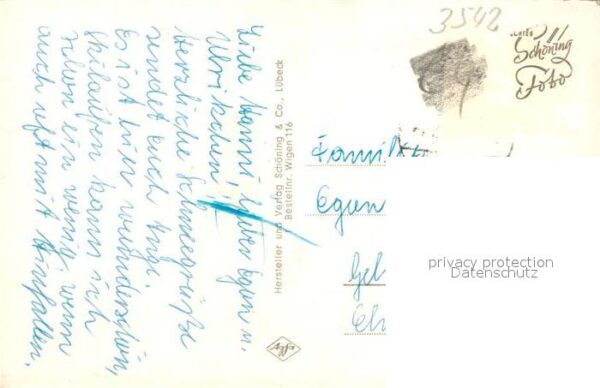 Liebe Hanni, lieber Egon u.
Ulrikchen!
Herzliche Schneegrüße
sendet euch Inge.
Es ist hier wunderschön,
Skilaufen kann ich
schon ein wenig, wenn
auch oft mit Hinfallen.
Hersteller und Verlag Schöning & Co., Lübeck
Bestellnr. Wigen 116
3542
Schöning
Foto
Famil
Egon
Gel
privacy protection
Datenschutz
Agfa